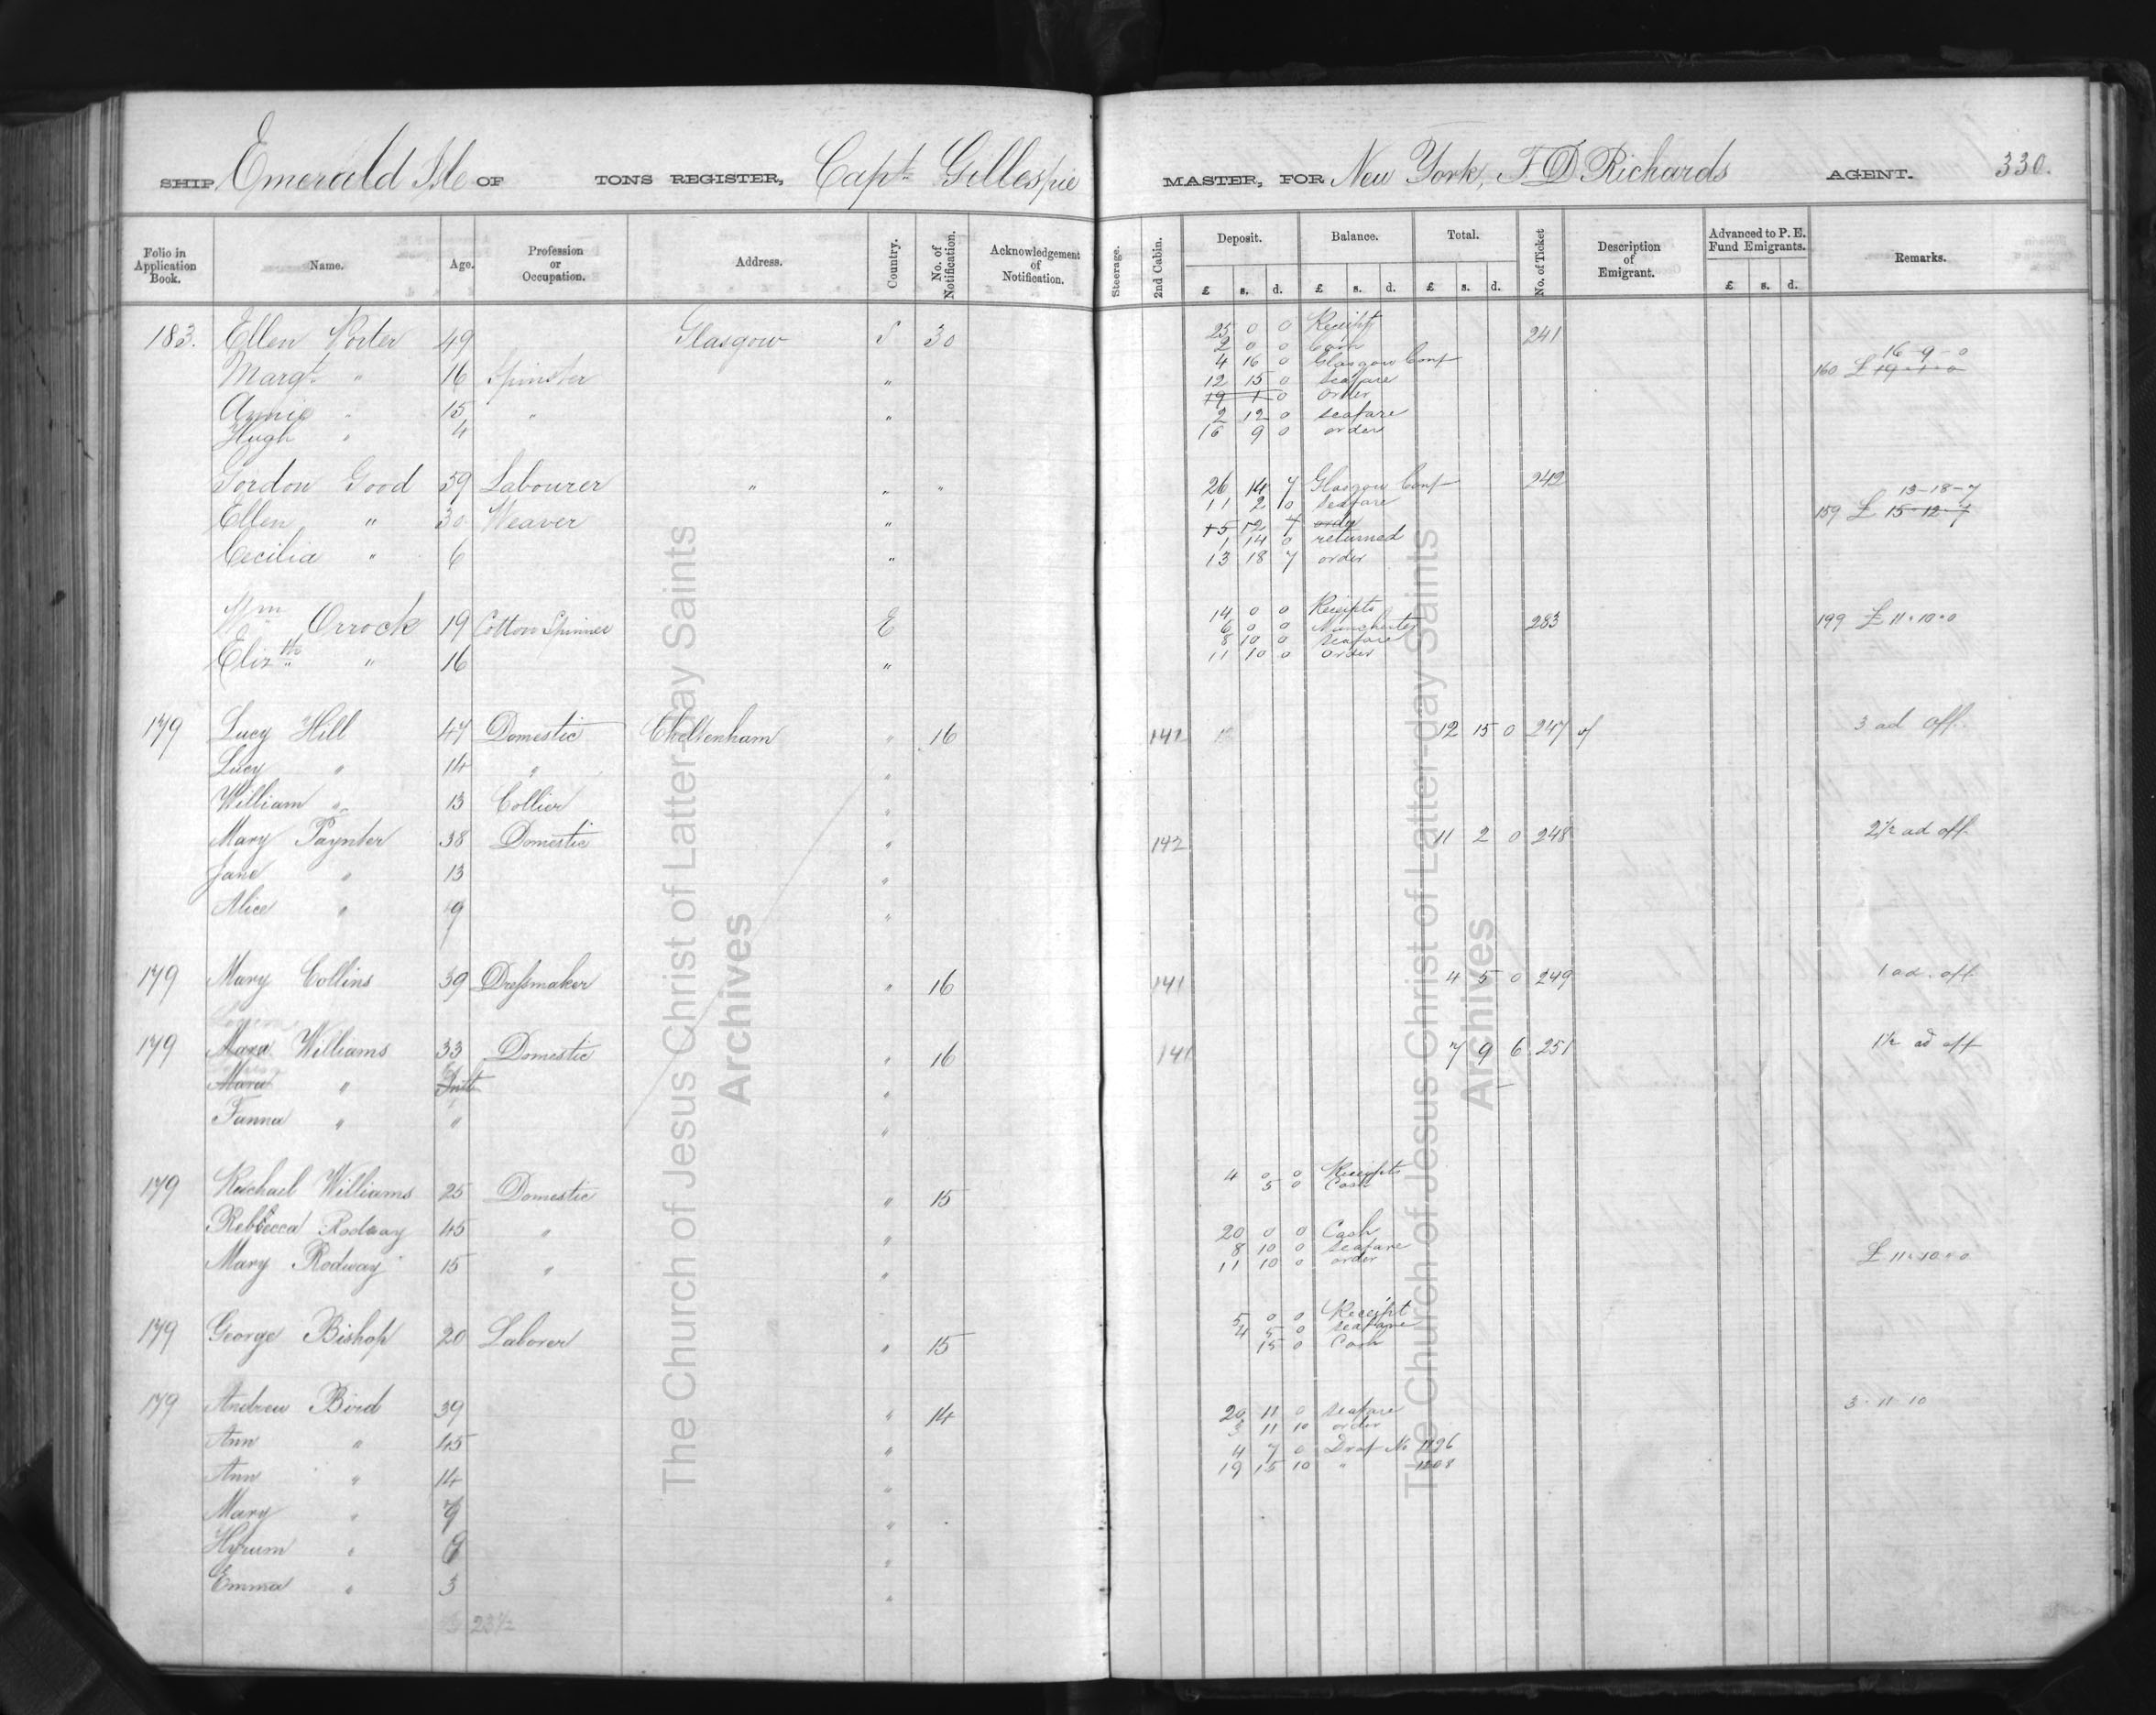 SHIP Emerald Isle OF TONS REGISTER, Capt Gillespie MASTER, FOR New York, F D Richards AGENT. 330.
Folio in Application Book. Name. Age. Profession or Occupation. Address. Country. No. of Notification. Acknowledgement of Notification. Steerage. 2nd Cabin. Deposit. Balance. Total. No. of Ticket Description of Emigrant. Advanced to P. E. Fund Emigrants. Remarks.
£ s. d. £ s. d. £ s. d. £ s. d.
183. Ellen Porter 49 Glasgow S 30 25 0 0 Receipts 241
2 0 0 Cash
Margt " 16 Spinster " 4 16 0 Glasgow Conf 16-9-0
12 15 0 seafare 160 £ 19-1-0
Annie " 15 " " 19 1 0 order
2 12 0 seafare
Hugh " 4 16 9 0 order
Gordon Good 59 Labourer " " " 26 14 7 Glasgow Conf 242
11 2 0 seafare 13-18-7
Ellen " 30 Weaver " 15 12 7 order 159 £ 15-12-7
1 14 0 returned
Cecilia " 6 " 13 18 7 order
Wm Orrock 19 Cotton Spinner E 14 0 0 Receipts 283 199 £ 11.10.0
6 0 0 Manchester
8 10 0 seafare
Elizth " 16 " 11 10 0 order
179 Lucy Hill 47 Domestic Cheltenham " 16 141 12 15 0 247 3 ad off.
Lucy " 14 " "
William " 13 Collier "
Mary Paynter 38 Domestic " 142 11 2 0 248 2½ ad off
Jane " 13 "
Alice " 9 "
179 Mary Collins 39 Dressmaker " 16 141 4 5 0 249 1 ad. off
179 Mara Williams 33 Domestic " 16 141 7 9 6 251 1½ ad off
Mara " Inft "
Fanna " " "
179 Rachael Williams 25 Domestic " 15 4 0 0 Receipts
5 0 Cash
Rebecca Rodway 45 " " 20 0 0 Cash
8 10 0 seafare
Mary Rodway 15 " " 11 10 0 order £ 11.10.0
179 George Bishop 20 Laborer " 15 5 0 0 Receipt
4 5 0 seafare
15 0 Cash
179 Andrew Bird 39 " 14 20 11 0 seafare 3.11.10
3 11 10 order
Ann " 45 " 4 7 0 Draf No 1196
Ann " 14 " 19 15 10 " 1208
Mary " 9 "
Hyrum " "
Emma " 3 "
23½
The Church of Jesus Christ of Latter-day Saints
Archives
The Church of Jesus Christ of Latter-day Saints
Archives